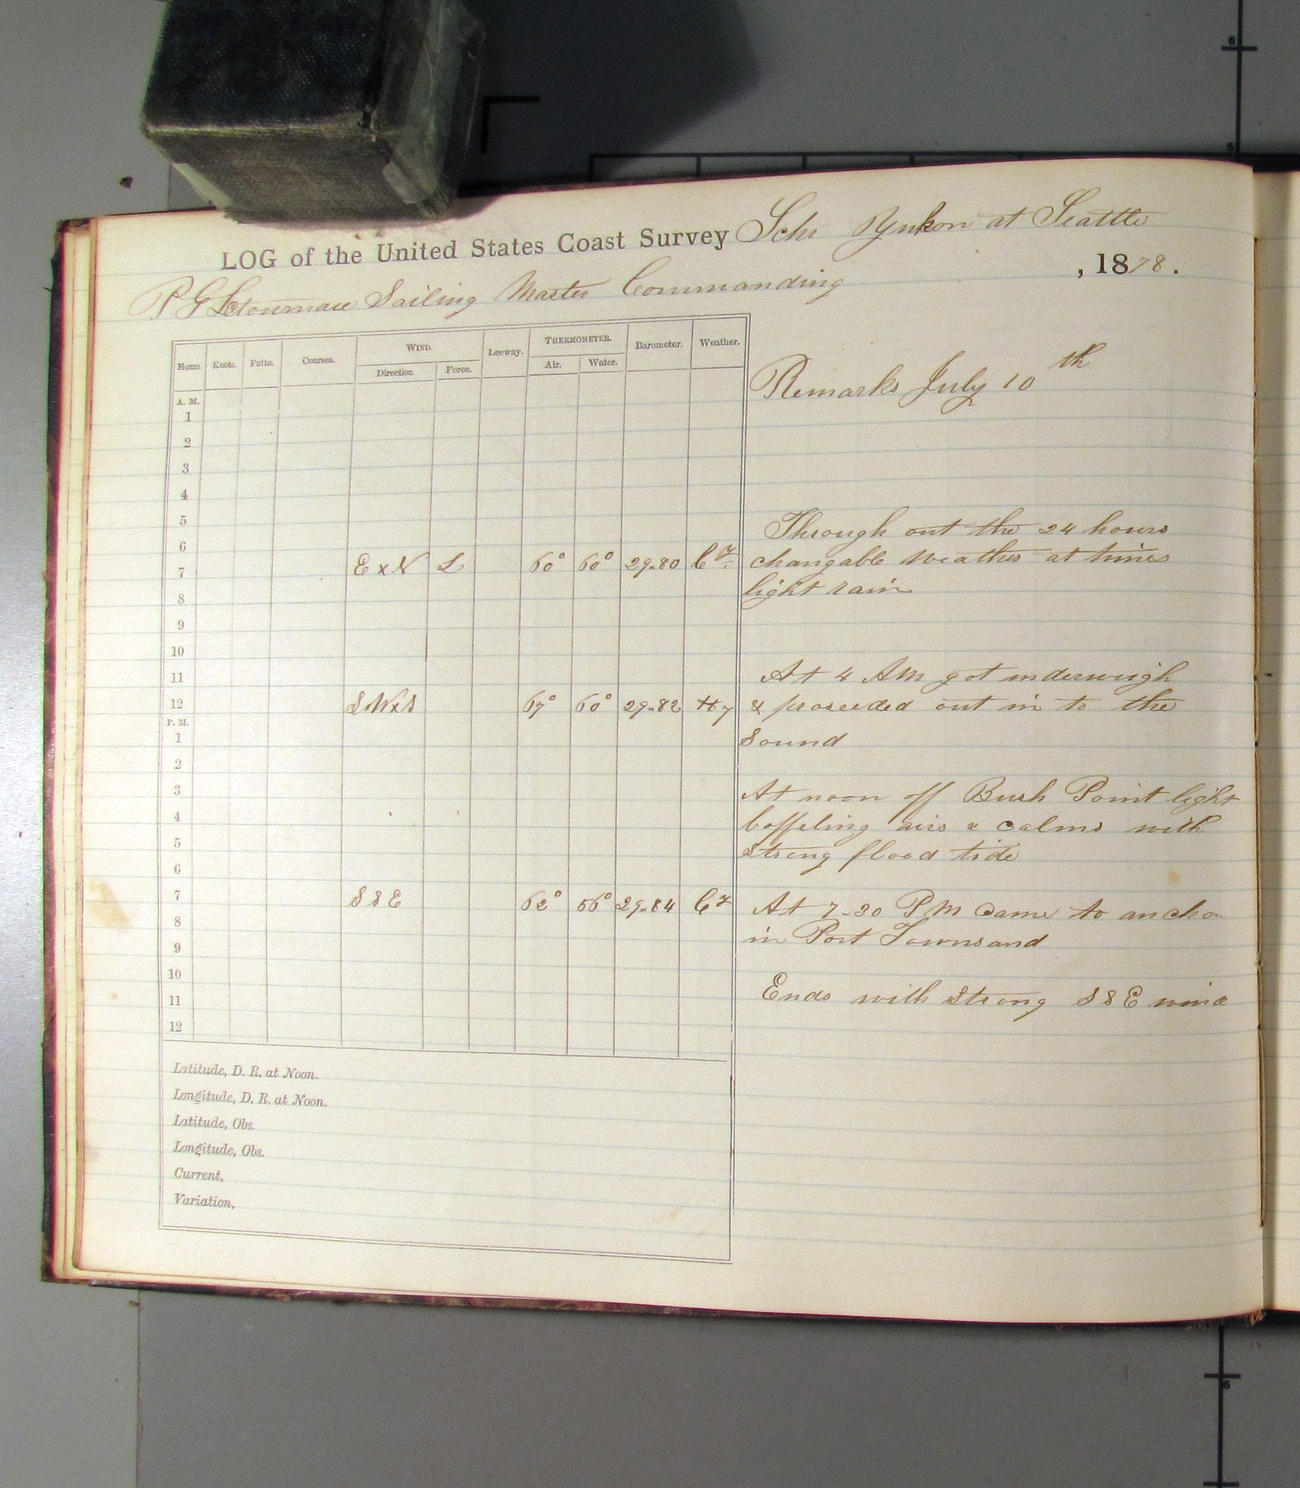 LOG of the United States Coast Survey Schr Yukon at Seattle
, 1878.
Sailing Master Commanding
Hours. Knots. Faths. Courses. WIND. Leeway. THERMOMETER. Barometer. Weather.
Direction. Force. Air. Water.
Remarks July 10th
A. M.
1
2
3
4
5
Through out the 24 hours
6
7 E x N L 60° 60° 29.80 Cy changable weather at times
8 light rain
9
10
11 At 4 AM got underweigh
12 SWxS 67° 60° 29.82 Hy & proseeded out in to the
P. M.
1 Sound
2
3 At noon off Bush Point light
4 baffeling airs & calms with
5 strong flood tide
6
7 S S E 62° 56° 29.84 Cy At 7-30 PM came to ancho
8 in Port Townsand
9
10
11 Ends with strong S S E wind
12
Latitude, D. R. at Noon.
Longitude, D. R. at Noon.
Latitude, Obs.
Longitude, Obs.
Current,
Variation,